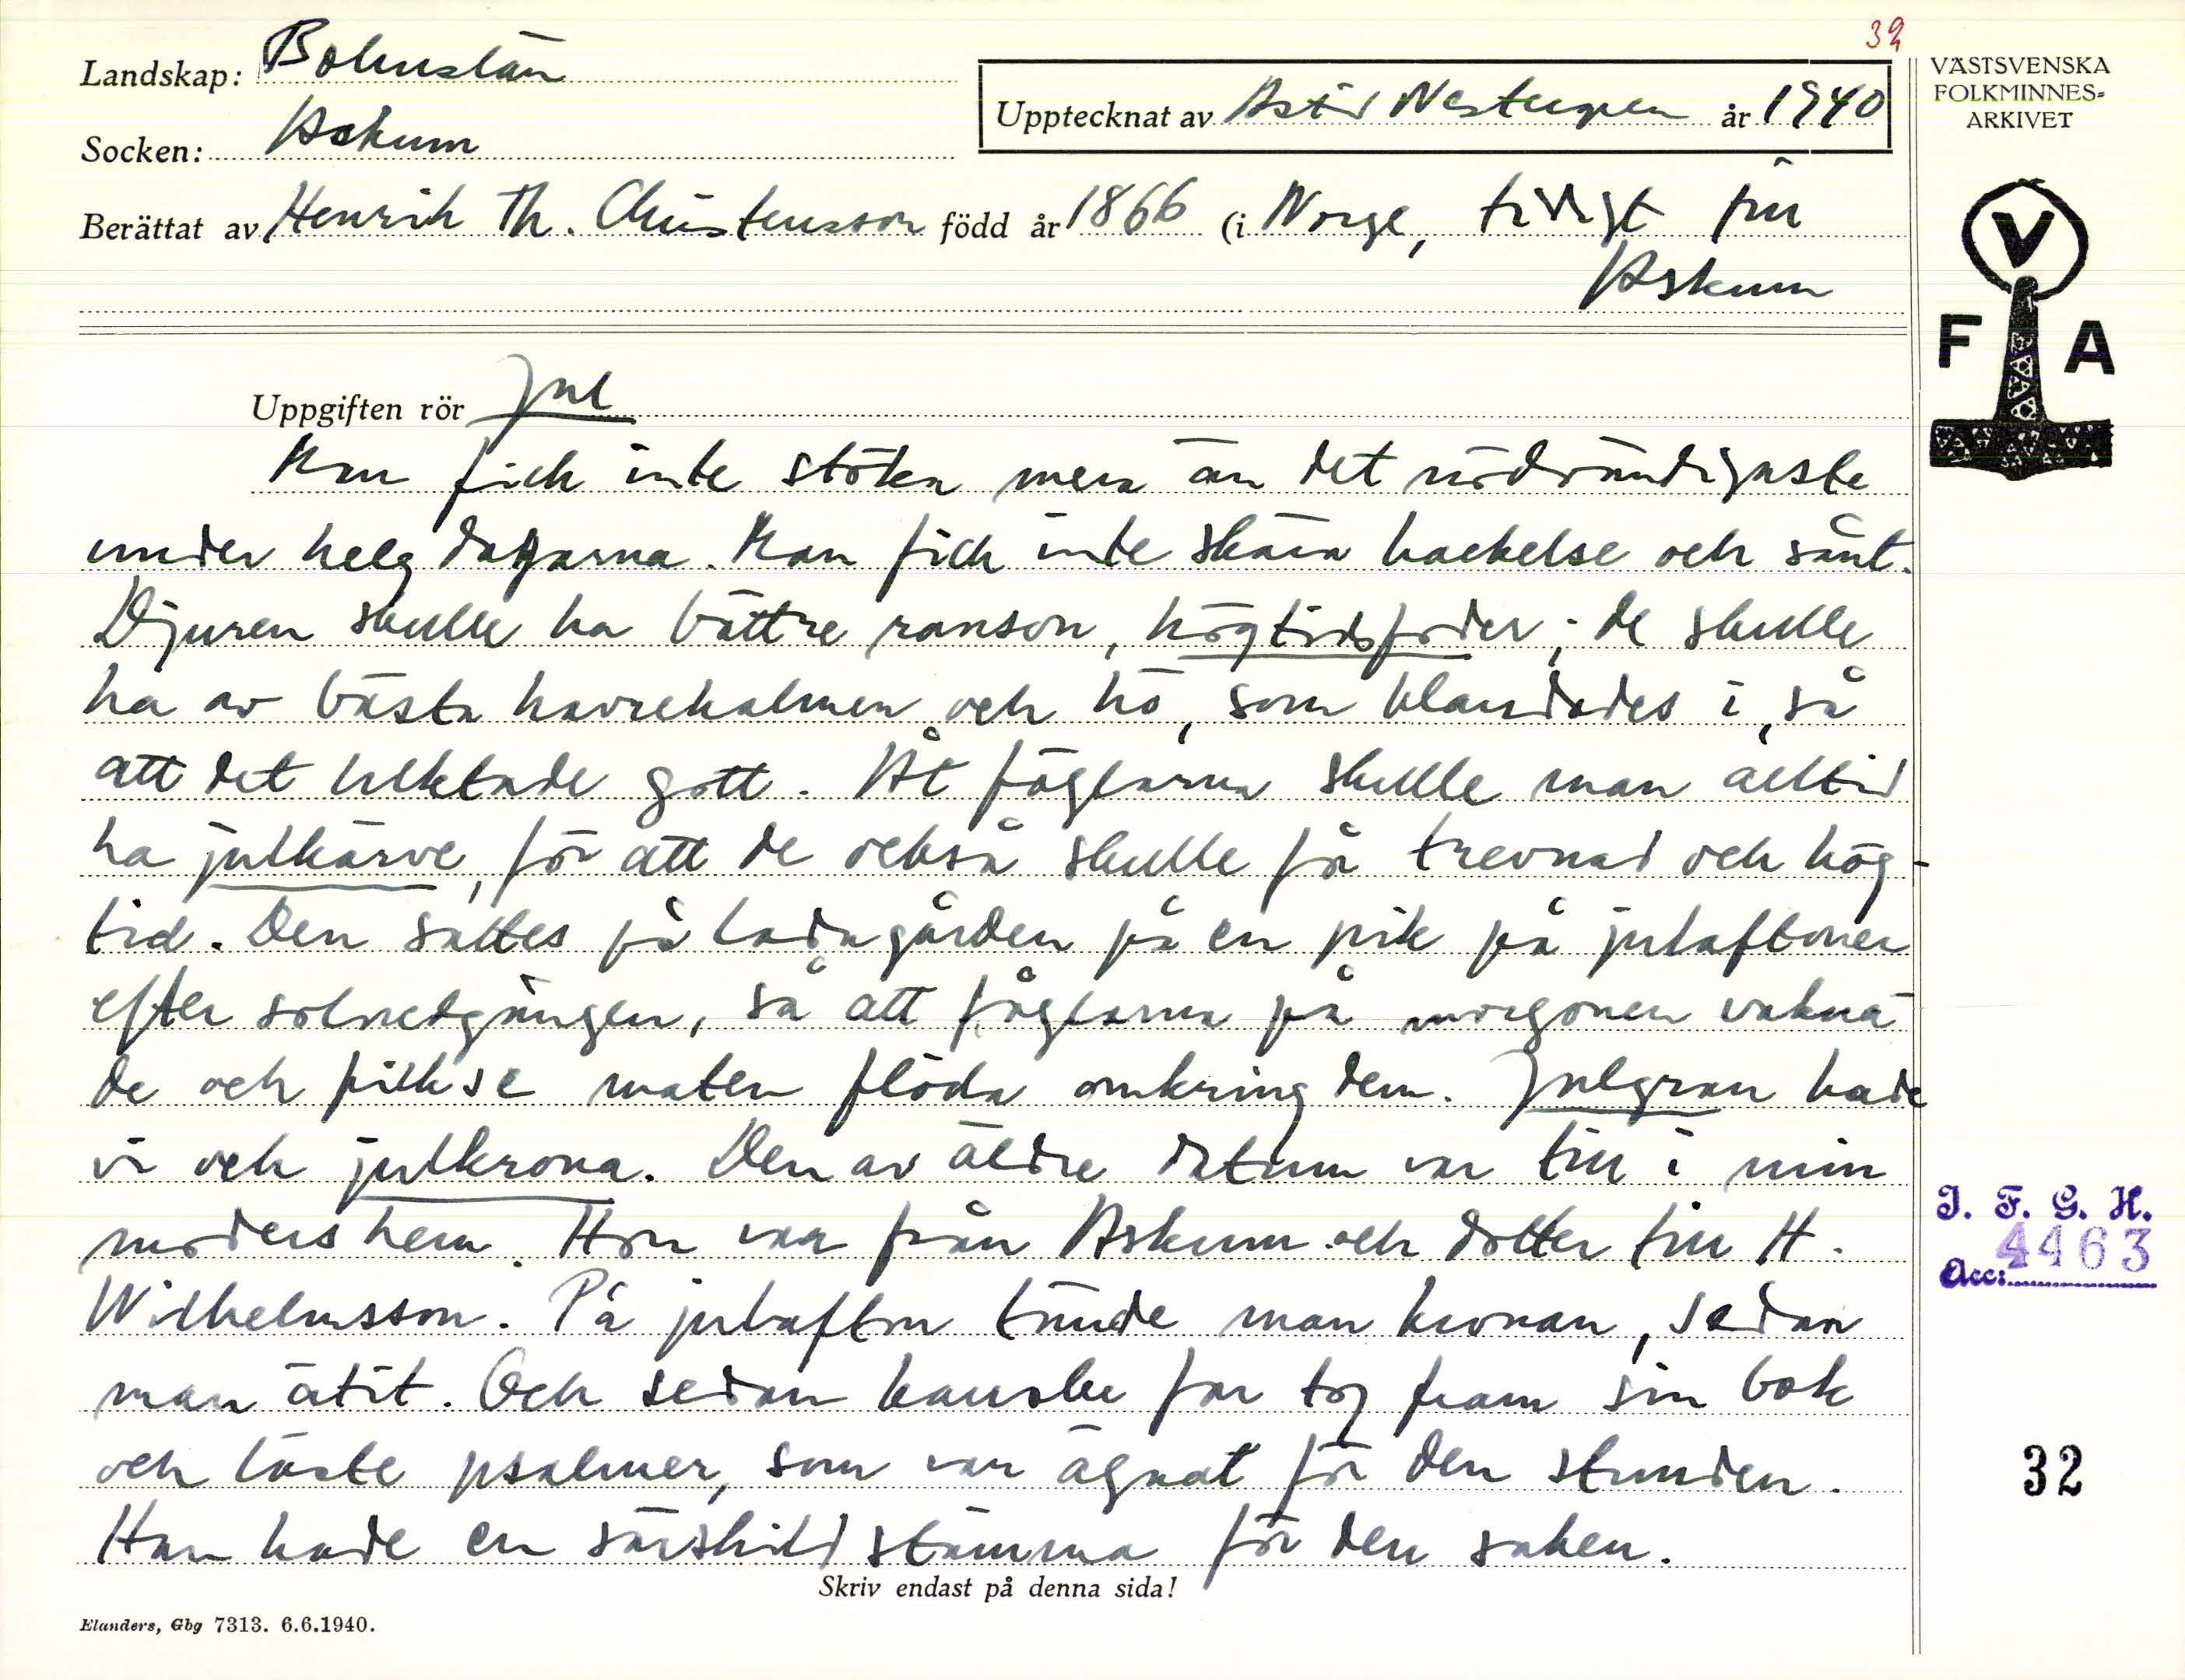 32
Landskap: Bohuslän
Socken: Askum
Upptecknat av Astrid Westergren år 1940
Berättat av Henrik Th. Christensson född år 1866 (i Norge, tidigt till
Askum
VÄSTSVENSKA
FOLKMINNES-
ARKIVET
V
F A
Uppgiften rör Jul
Man fick inte stöka mera än det nödvändigaste
under helgdagarna. Man fick inte skära hackelse och sånt.
Djuren skulle ha bättre ranson, högtidsfoder; de skulle
ha av bästa havrehalmen och hö, som blandades i, så
att det luktade gott. Åt fåglarna skulle man alltid
ha julkärve, för att de också skulle få trevnad och hög-
tid. Den sattes på ladugården på en pik på julaftonen
efter solnedgången, så att fåglarna på morgonen vakna-
de och fick se maten flöda omkring dem. Julgran hade
vi och julkrona. Den av äldre datum var till i min
moders hem. Hon var från Askum och dotter till H.
Wilhelmsson. På julafton tände man kronan, sedan
man ätit. Och sedan kanske far tog fram sin bok
och läste psalmer, som var ägnat för den stunden.
Han hade en särskild stämma för den saken.
Skriv endast på denna sida!
Elanders, Gbg 7313. 6.6.1940.
I. F. G. H.
Acc: 4463
32